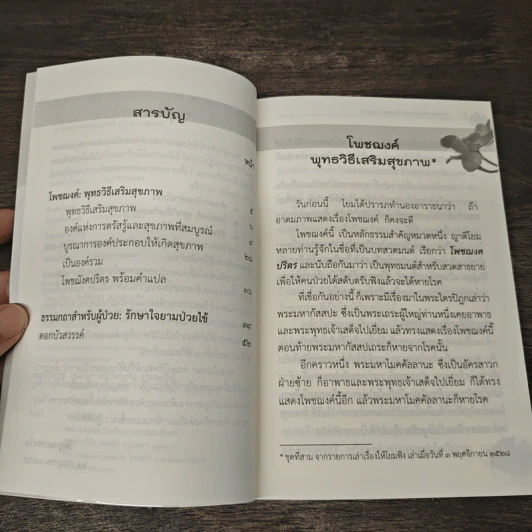 สารบัญ
หน้า
โพชฌงค์: พุทธวิธีเสริมสุขภาพ ๕
พุทธวิธีเสริมสุขภาพ ๖
องค์แห่งการตรัสรู้และสุขภาพที่สมบูรณ์ ๙
บูรณาการองค์ประกอบให้เกิดสุขภาพ ๒๘
เป็นองค์รวม
โพชฌังคปริตร พร้อมคำแปล ๓๖
ธรรมกถาสำหรับผู้ป่วย: รักษาใจยามป่วยไข้ ๓๙
ดอกบัวสวรรค์ ๕๒
โพชฌงค์
พุทธวิธีเสริมสุขภาพ*
วันก่อนนี้ โยมได้ปรารภทำนองอาราธนาว่า ถ้า
อาตมภาพแสดงเรื่องโพชฌงค์ ก็คงจะดี
โพชฌงค์นี้ เป็นหลักธรรมสำคัญหมวดหนึ่ง ญาติโยม
หลายท่านรู้จักในชื่อที่เป็นบทสวดมนต์ เรียกว่า โพชฌงค
ปริตร และนับถือกันมาว่า เป็นพุทธมนต์สำหรับสวดสาธยาย
เพื่อให้คนป่วยได้สดับตรับฟังแล้วจะได้หายโรค
ที่เชื่อกันอย่างนี้ ก็เพราะมีเรื่องมาในพระไตรปิฎกเล่าว่า
พระมหากัสสปะ ซึ่งเป็นพระเถระผู้ใหญ่ท่านหนึ่งเคยอาพาธ
และพระพุทธเจ้าเสด็จไปเยี่ยม แล้วทรงแสดงเรื่องโพชฌงค์นี้
ตอนท้ายพระมหากัสสปเถระก็หายจากโรคนั้น
อีกคราวหนึ่ง พระมหาโมคคัลลานะ ซึ่งเป็นอัครสาวก
ฝ่ายซ้าย ก็อาพาธและพระพุทธเจ้าเสด็จไปเยี่ยม ก็ได้ทรง
แสดงโพชฌงค์นี้อีก แล้วพระมหาโมคคัลลานะก็หายโรค
* ชุดที่สาม จากรายการเล่าเรื่องให้โยมฟัง เล่าเมื่อวันที่ ๓ พฤศจิกายน ๒๕๒๘